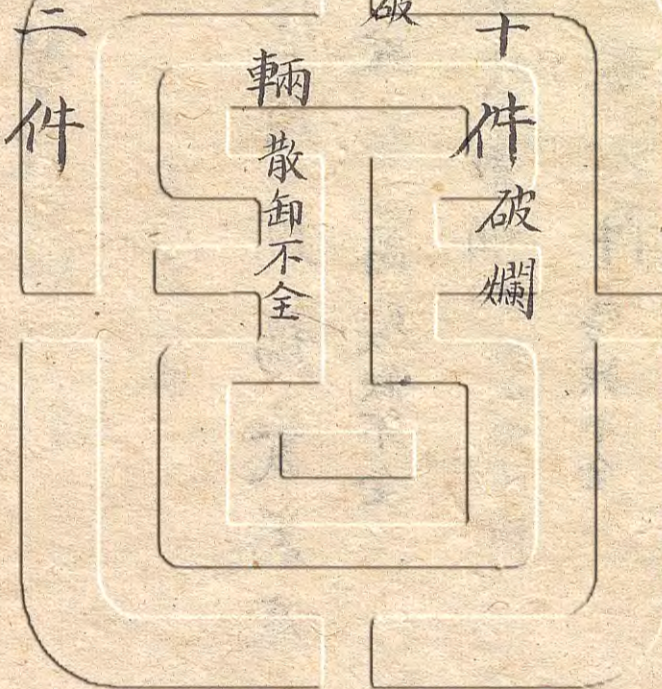 十件破爛
破
輛散卸不全
二件